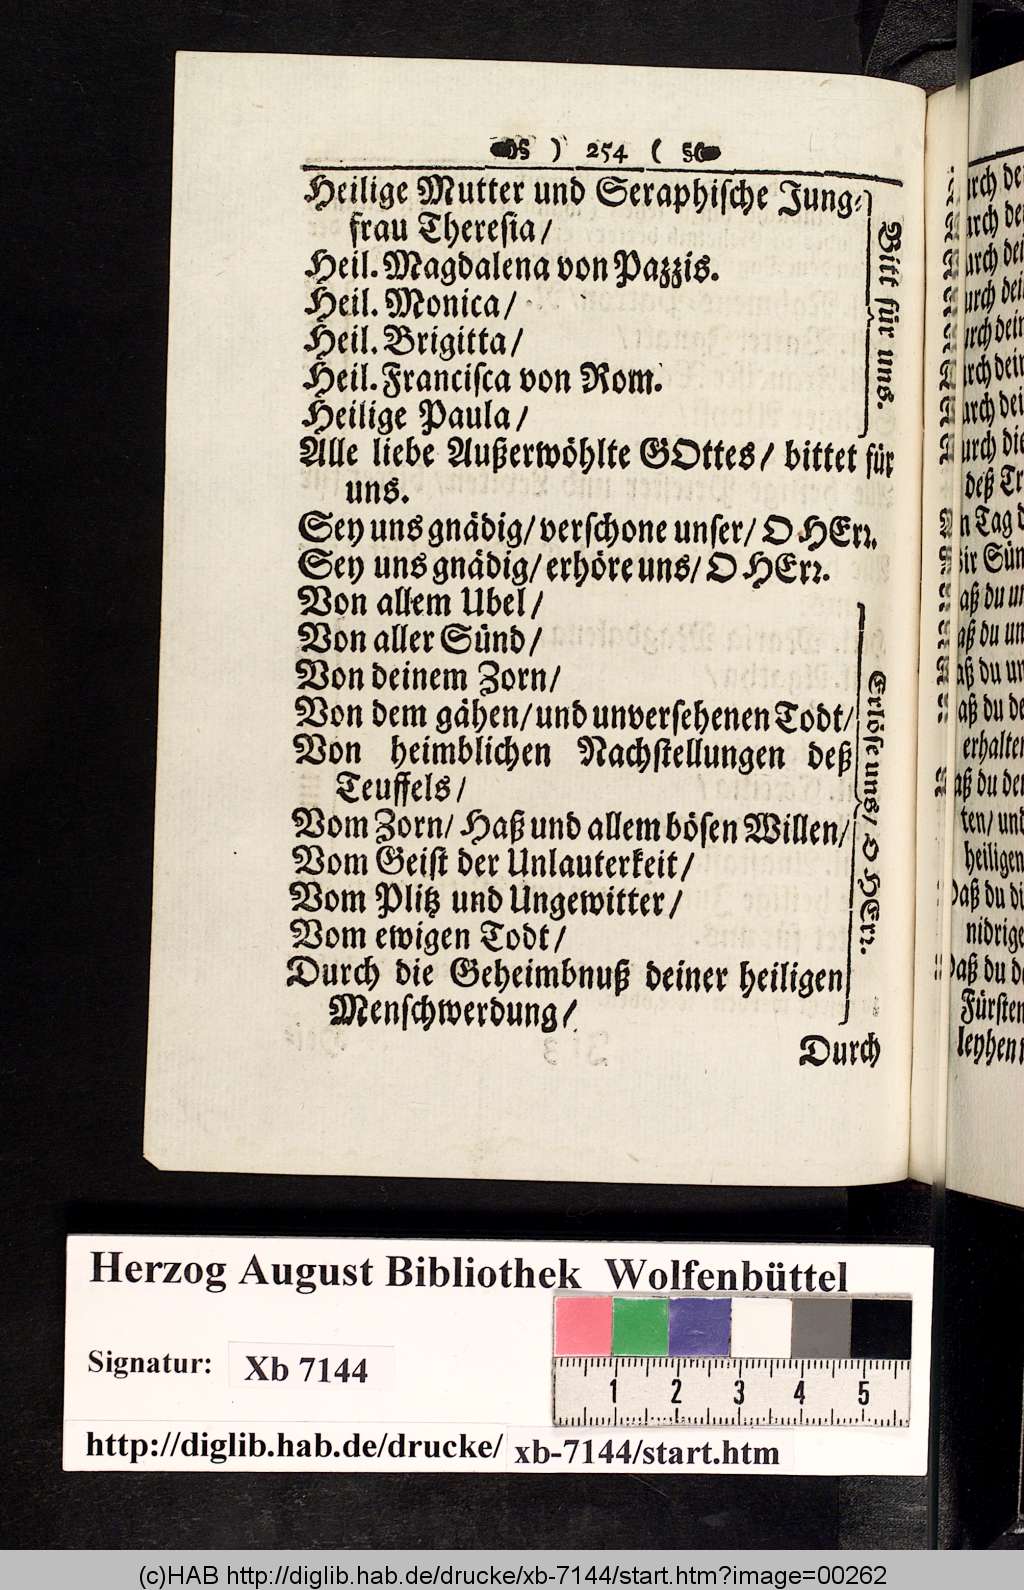 ) 254 (
Heilige Mutter und Seraphische Jung-
frau Theresia/
Heil. Magdalena von Pazzis.
Heil. Monica/
Heil. Brigitta/
Heil. Francisca von Rom.
Heilige Paula/
Bitt für uns.
Alle liebe Außerwöhlte GOttes/ bittet für
uns.
Sey uns gnädig/ verschone unser/ O HErr.
Sey uns gnädig/ erhöre uns/ O HErr.
Von allem Ubel/
Von aller Sünd/
Von deinem Zorn/
Von dem gähen/ und unversehenen Todt/
Von heimblichen Nachstellungen deß
Teuffels/
Vom Zorn/ Haß und allem bösen Willen/
Vom Geist der Unlauterkeit/
Vom Plitz und Ungewitter/
Vom ewigen Todt/
Durch die Geheimbnuß deiner heiligen
Menschwerdung/
Erlöse uns/ O HErr.
Durch
Herzog August Bibliothek Wolfenbüttel
Signatur: Xb 7144
1 2 3 4 5
http://diglib.hab.de/drucke/ xb-7144/start.htm
(c)HAB http://diglib.hab.de/drucke/xb-7144/start.htm?image=00262